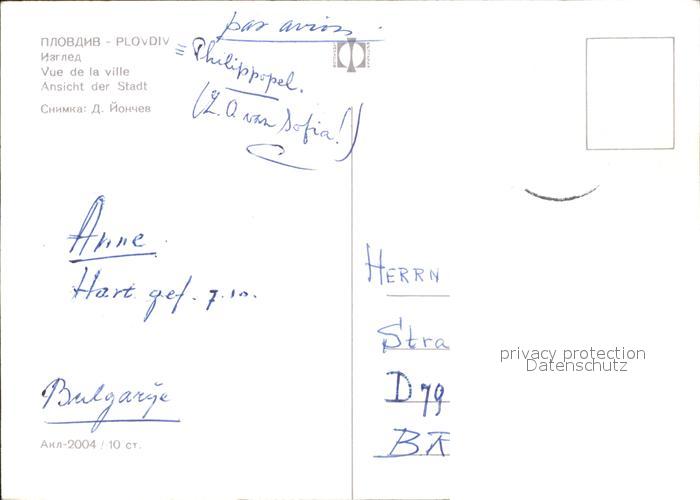 par avion
ПЛОВДИВ - PLOVDIV
Изглед
Vue de la ville
Ansicht der Stadt
Снимка: Д. Йончев
= Philippopel.
(Z.O. van Sofia!)
Anne
Hart. gef. 7.10.
HERRN
Stra
D 79
BR
Bulgarije
Акл-2004 / 10 ст.
privacy protection
Datenschutz